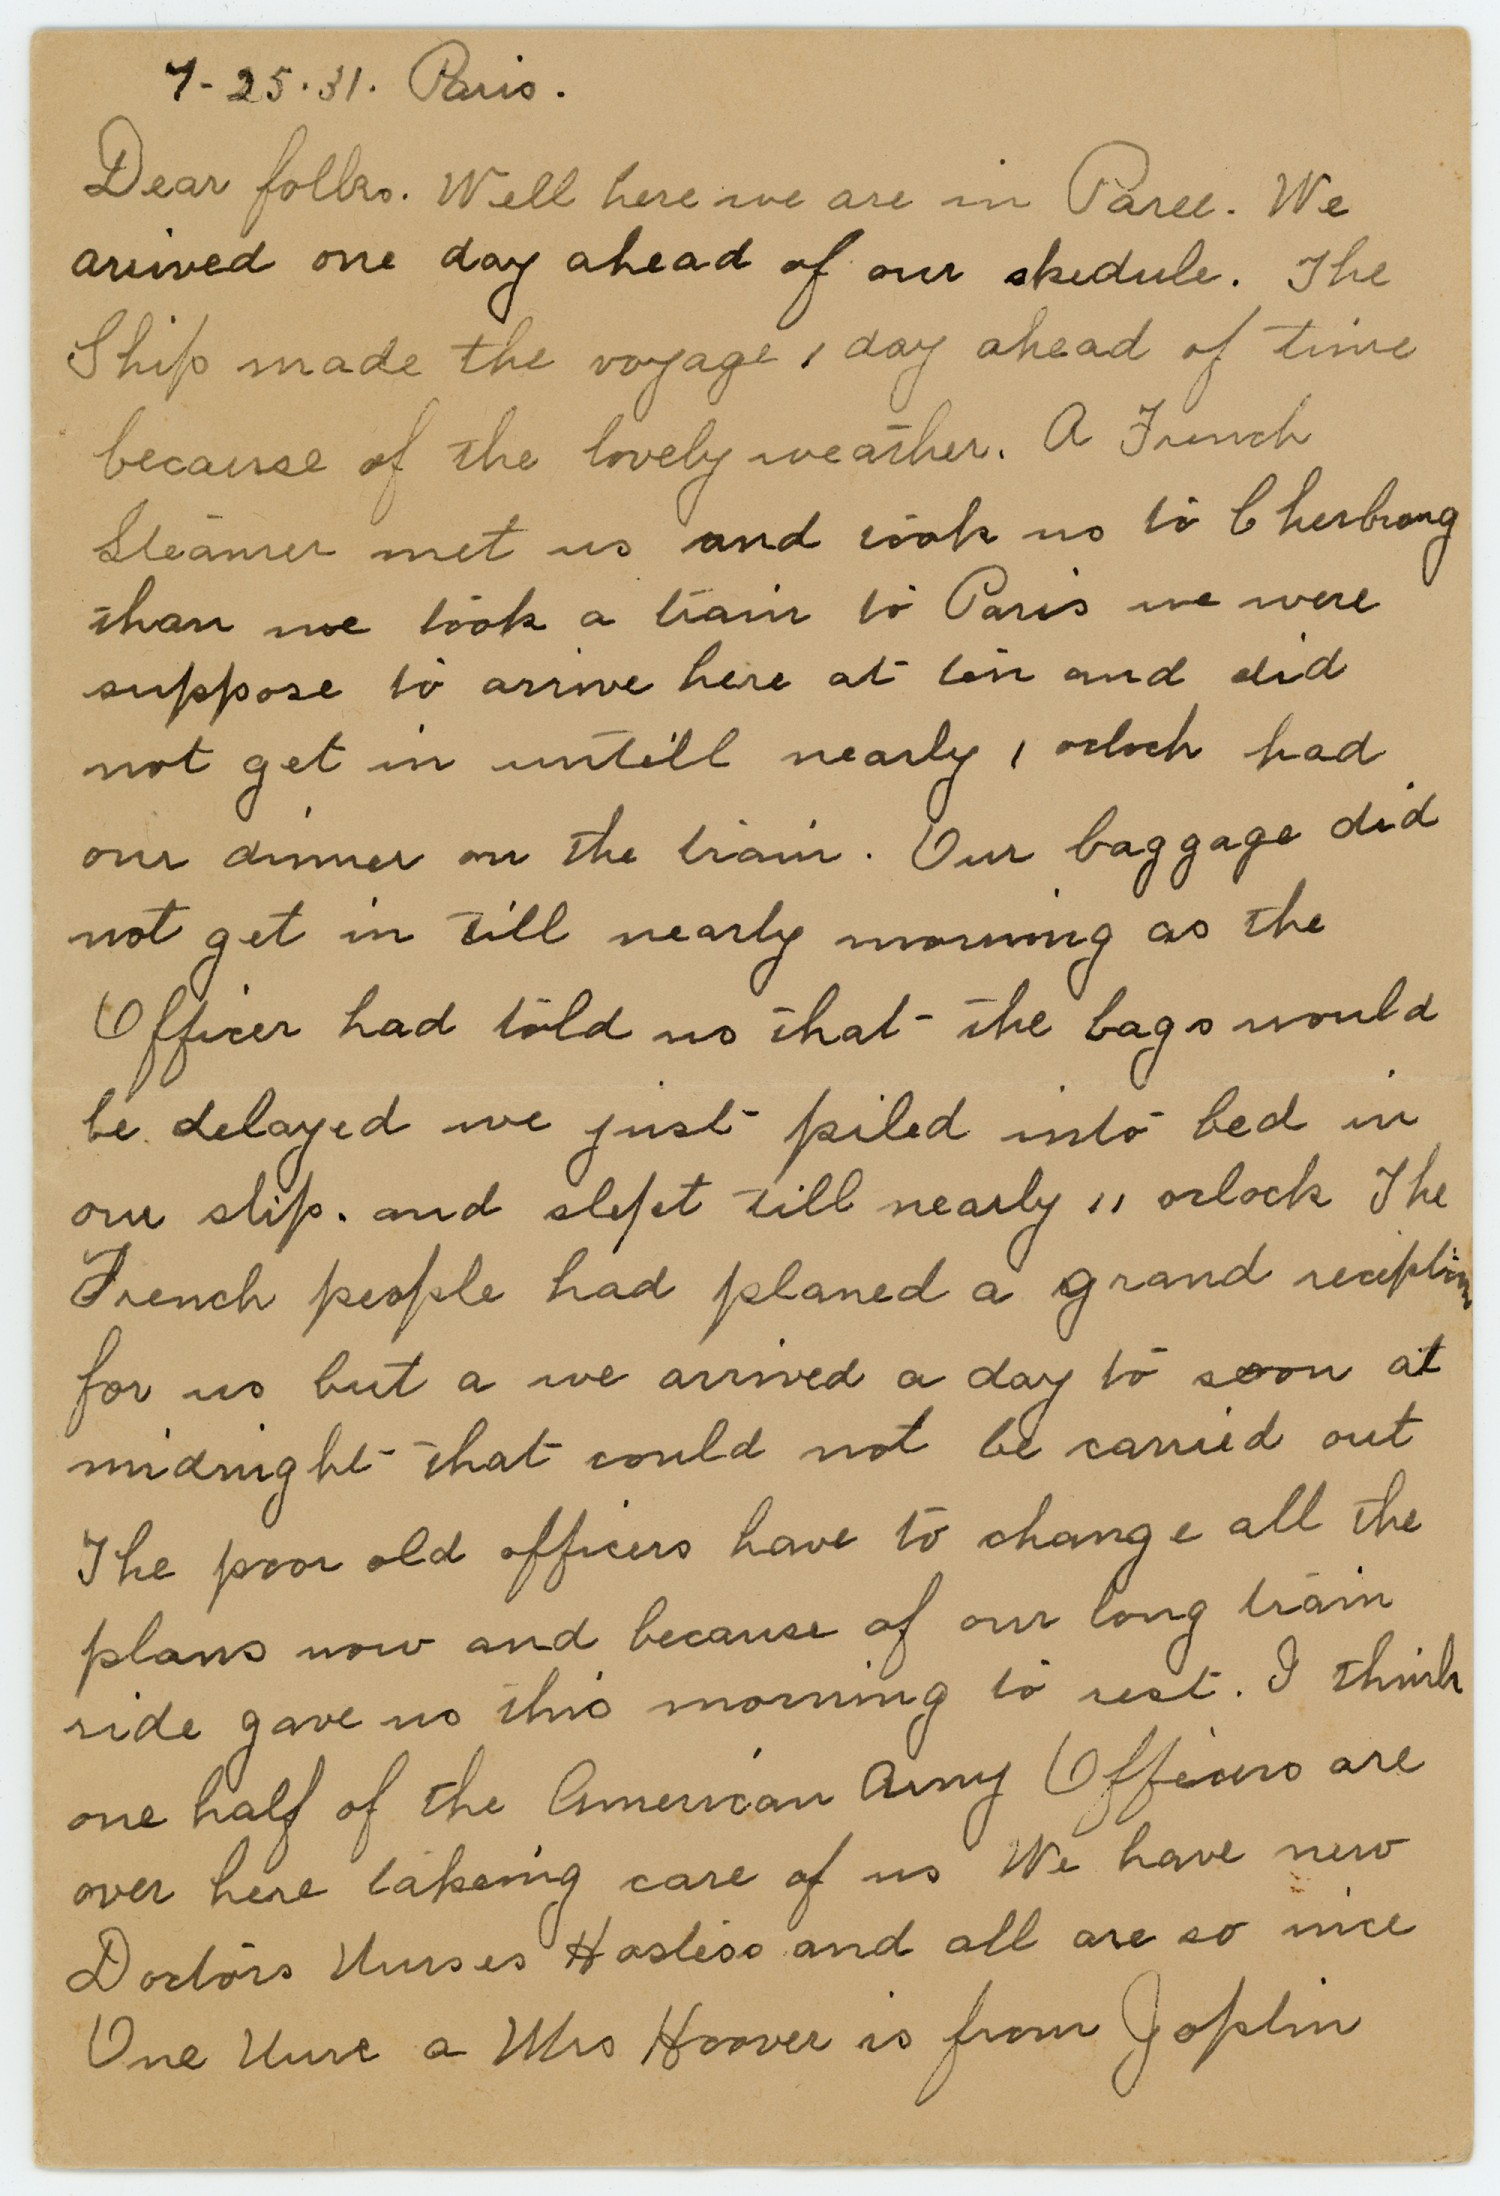 7-25-31. Paris.
Dear folks. Well here we are in Paree. We
arived one day ahead of our skedule. The
Ship made the voyage 1 day ahead of time
because of the lovely weather. A French
Steamer met us and took us to Cherbrong
than we took a train to Paris we were
suppose to arrive here at ten and did
not get in untill nearly 1 oclock had
our dinner on the train. Our baggage did
not get in till nearly morning as the
Officer had told us that the bags would
be delayed we just piled into bed in
our slip. and slept till nearly 11 oclock The
French people had planed a grand reception
for us but a we arrived a day to soon at
midnight that could not be carried out
The poor old officers have to change all the
plans now and because of our long train
ride gave us this morning to rest. I think
one half of the American Army Officers are
over here takeing care of us We have new
Doctors Nurses Hostess and all are so nice
One Nurse a Mrs Hoover is from Joplin